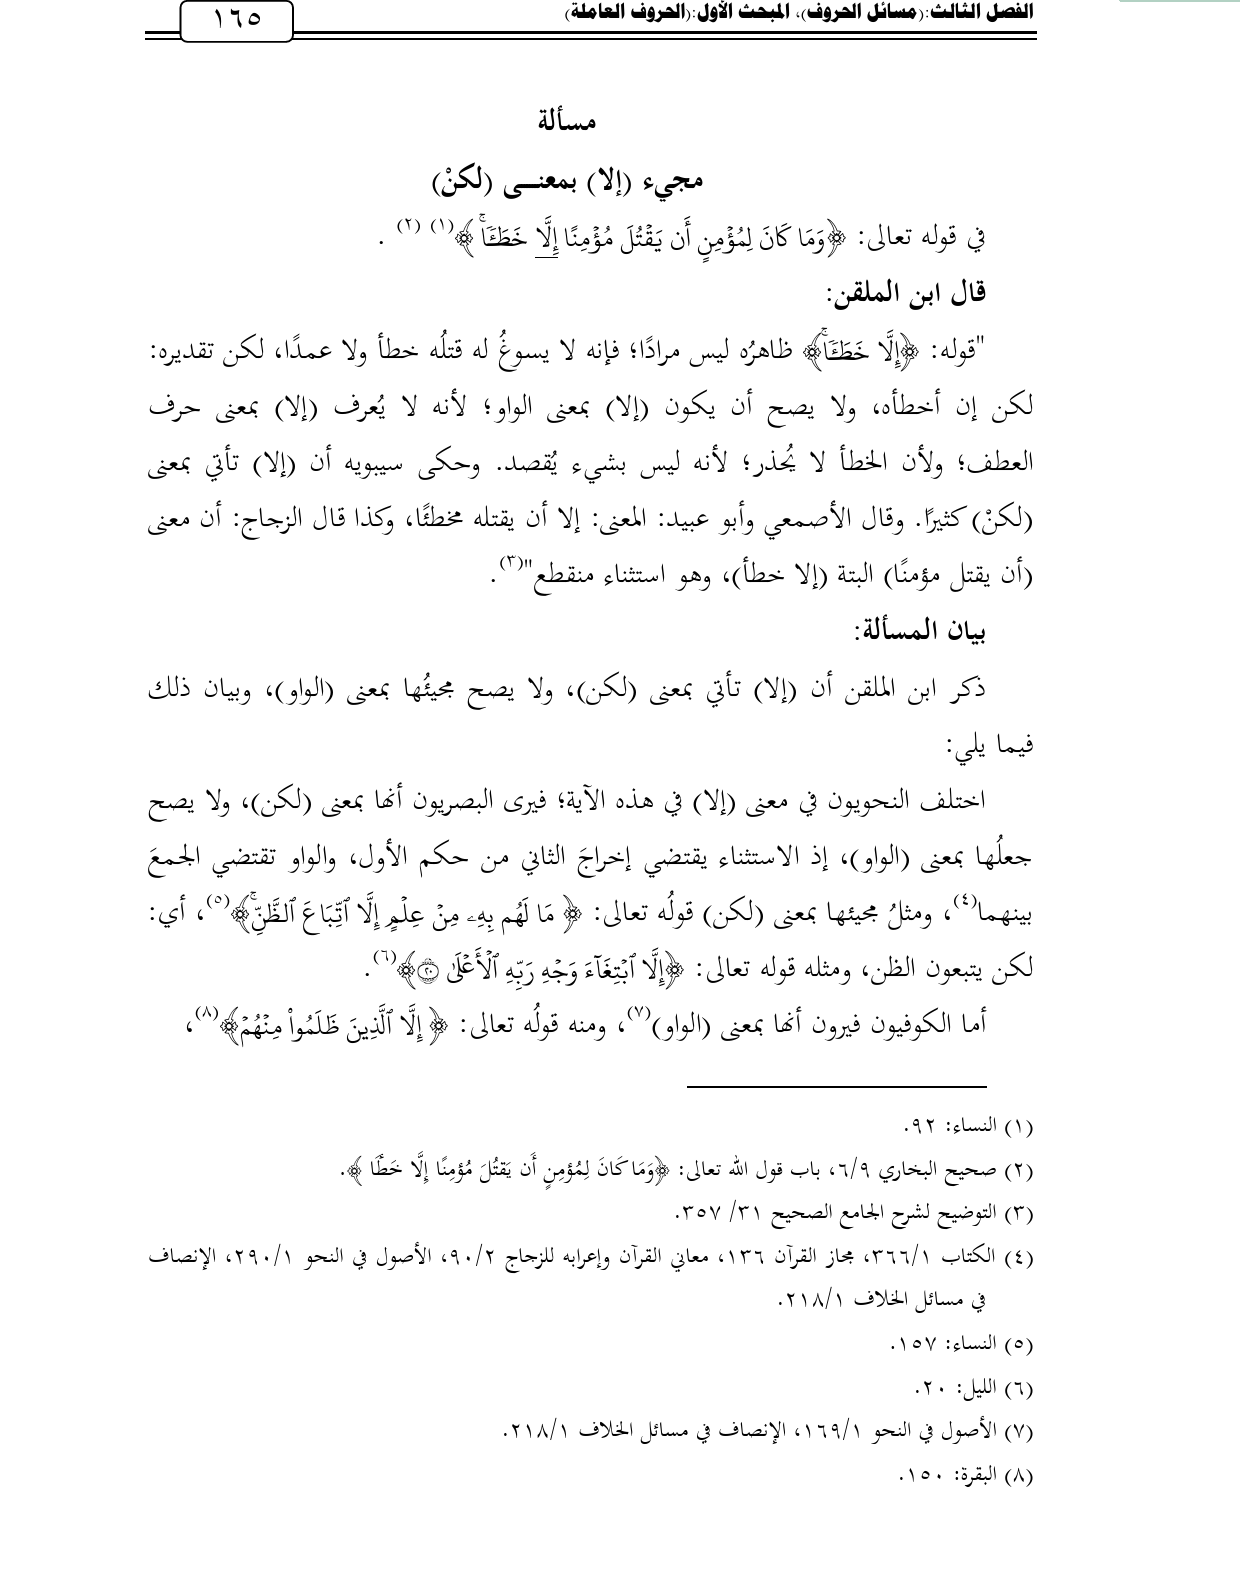 الفصل الثالث:(مسائل الحروف)، المبحث الأول:(الحروف العاملة)
١٦٥
مسألة
مجيء (إلا) بمعنــى (لكنْ)
في قوله تعالى: ﴿وَمَا كَانَ لِمُؤْمِنٍ أَن يَقْتُلَ مُؤْمِنًا إِلَّا خَطَـًٔاۚ﴾(١) (٢) .
قال ابن الملقن:
"قوله: ﴿إِلَّا خَطَـًٔاۚ﴾ ظاهرُه ليس مرادًا؛ فإنه لا يسوغُ له قتلُه خطأ ولا عمدًا، لكن تقديره:
لكن إن أخطأه، ولا يصح أن يكون (إلا) بمعنى الواو؛ لأنه لا يُعرف (إلا) بمعنى حرف
العطف؛ ولأن الخطأ لا يُحذر؛ لأنه ليس بشيء يُقصد. وحكى سيبويه أن (إلا) تأتي بمعنى
(لكنْ) كثيرًا. وقال الأصمعي وأبو عبيد: المعنى: إلا أن يقتله مخطئًا، وكذا قال الزجاج: أن معنى
(أن يقتل مؤمنًا) البتة (إلا خطأ)، وهو استثناء منقطع"(٣).
بيان المسألة:
ذكر ابن الملقن أن (إلا) تأتي بمعنى (لكن)، ولا يصح مجيئُها بمعنى (الواو)، وبيان ذلك
فيما يلي:
اختلف النحويون في معنى (إلا) في هذه الآية؛ فيرى البصريون أنها بمعنى (لكن)، ولا يصح
جعلُها بمعنى (الواو)، إذ الاستثناء يقتضي إخراجَ الثاني من حكم الأول، والواو تقتضي الجمعَ
بينهما(٤)، ومثلُ مجيئها بمعنى (لكن) قولُه تعالى: ﴿ مَا لَهُم بِهِۦ مِنْ عِلْمٍ إِلَّا ٱتِّبَاعَ ٱلظَّنِّۚ﴾(٥)، أي:
لكن يتبعون الظن، ومثله قوله تعالى: ﴿إِلَّا ٱبْتِغَآءَ وَجْهِ رَبِّهِ ٱلْأَعْلَىٰ ۝٢٠﴾(٦).
أما الكوفيون فيرون أنها بمعنى (الواو)(٧)، ومنه قولُه تعالى: ﴿ إِلَّا ٱلَّذِينَ ظَلَمُوا۟ مِنْهُمْ﴾(٨)،
(١) النساء: ٩٢.
(٢) صحيح البخاري ٦/٩، باب قول الله تعالى: ﴿وَمَا كَانَ لِمُؤمِنٍ أَن يَقتُلَ مُؤمِنًا إِلَّا خَطَـًٔا ﴾.
(٣) التوضيح لشرح الجامع الصحيح ٣١/ ٣٥٧.
(٤) الكتاب ٣٦٦/١، مجاز القرآن ١٣٦، معاني القرآن وإعرابه للزجاج ٩٠/٢، الأصول في النحو ٢٩٠/١، الإنصاف
في مسائل الخلاف ٢١٨/١.
(٥) النساء: ١٥٧.
(٦) الليل: ٢٠.
(٧) الأصول في النحو ١٦٩/١، الإنصاف في مسائل الخلاف ٢١٨/١.
(٨) البقرة: ١٥٠.